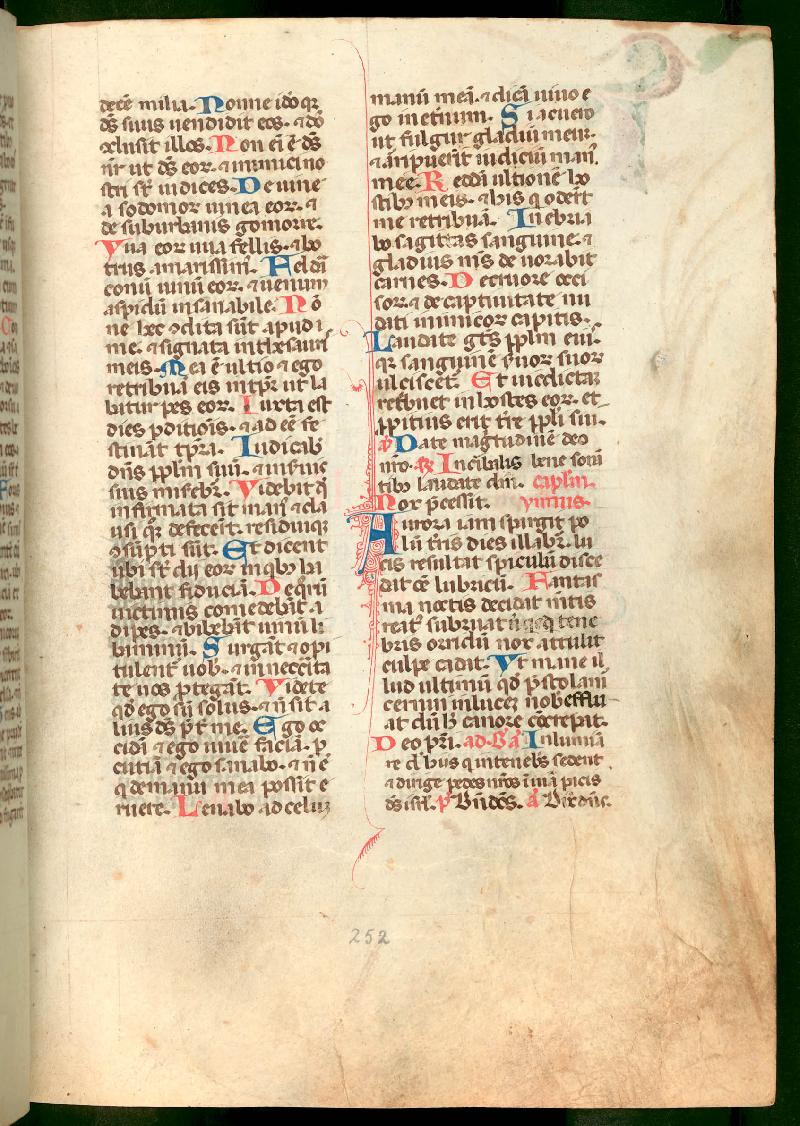 decē milia. Nonne ido qz
ds̄ suus uendidit eos. ⁊ dō
ꝯclusit illos. Non eī ē ds̄
nr̄ ut ds̄ eor. ⁊ inimici no
stri st̄ iudices. De uine
a sodomor uinea eor. ⁊
de suburbanis gomorre.
Vua eor uua fellis. ⁊ bo
trus amarissim̄. Fel dra
conū uinū eor. ⁊ uenenum
aspidū insanabile. Nō
ne hec ꝯdita sūt apud
me. ⁊ signata in thesauris
meis. Mea ē ultio ⁊ ego
retribuā eis in tp̄r ut la
bitur pes eor. Iuxta est
dies pditiois. ⁊ ad eē fe
stinant tp̄ra. Iudicab̄
dn̄s pplm suū. ⁊ in suis
suis misebr̄. Videbit qd̄
infirmata sit man̄ ⁊ cla
usi qz defecert̄. residuiqz
ꝯsūpti sūt. Et dicent
ubi st̄ dij eor in qbꝰ ha
bebant fiduciā. De qru
uictimis comedebāt a
dipes. ⁊ bibebāt uinū li
baminū. Surgāt ⁊ opi
tulent̄ uob̄. ⁊ in neccita
te uos ptegāt. Videte
qd ego sū solus. ⁊ n̄ sit a
lius ds̄ p̄t me. Ego oc
cidā ⁊ ego uiuē faciā. p
cutiā ⁊ ego sanabo. ⁊ n̄ ē
q de manu mea possit e
ruere. Leuabo ad celuʒ
manū meā. ⁊ dicā uiuo e
go in etnum. Si acuero
ut fulgur gladiū meuʒ.
⁊ aripuerit iudiciū man̄
mee. Reddā ultionē ho
stibꝰ meis. ⁊ his q odert̄
me retribuā. Inebria
bo sagittas sanguine. ⁊
gladius m̄s deuorabit
carnes. De cruore occi
sor. ⁊ de captiuitate nu
dati inimicor capitis.
Laudate gt̄s pplm eiꝰ.
qr sanguinē suor suor
ulciscet̄. Et uindictaʒ
retbuet in hostes eor. et
ppitius erit tre ppli sui.
a Date magtudinē deo
nro. ps Incībalis bene soni
tibꝰ laudate dm̄. caplm.
Nox p̄cessit. ymnus.
Aurora iam spirgit po
lū tris dies illabr̄. lu
cis resultat spiculū disce
dat oē lubricū. Fantas
ma noctis decidat mt̄is
reatꝰ subruat qcqd tene
bris orridū nox attulit
culpe cadit. Vt mane il
lud ultimū qd p̄stolam̄
cernui in lucez nob̄ efflu
at dū h canore ɔcrepat.
Deo pri. ad. Ba Inlumīa
re dn̄ hus qui in tenebs sedent
⁊ dirige pedes nr̄os i uiā pacis
ds̄ isrl. p̄ Bn̄dc̄s. a